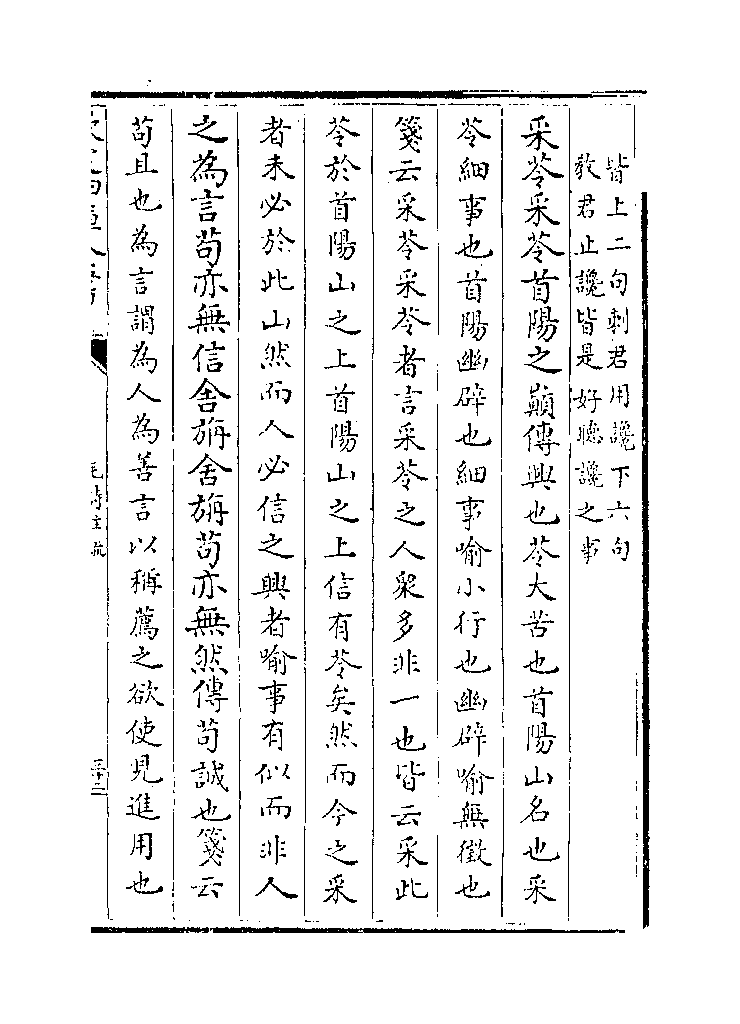 皆上二句刺君用讒下六句
教君止讒皆是好聽讒之事
采苓采苓首陽之巔傳興也苓大苦也首陽山名也采
苓細事也首陽幽辟也細事喻小行也幽辟喻無徵也
箋云采苓采苓者言采苓之人衆多非一也皆云采此
苓於首陽山之上首陽山之上信有苓矣然而今之采
者未必於此山然而人必信之興者喻事有似而非人
之為言苟亦無信舍旃舍旃苟亦無然傳苟誠也箋云
苟且也為言謂為人為善言以稱薦之欲使見進用也
毛詩注疏
三十二